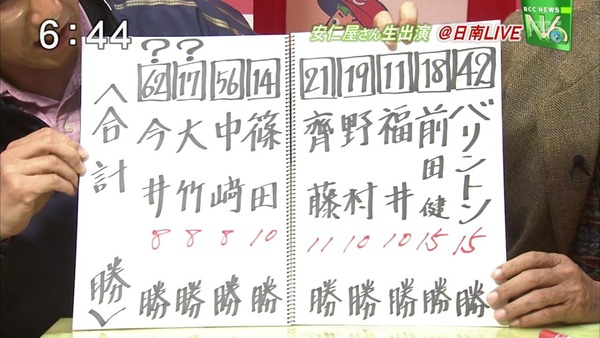 6:44
安仁屋さん生出演 @日南LIVE
RCC NEWS
N6
42 バリントン 15勝
18 前田健 15勝
11 福井 10勝
19 野村 10勝
21 齊藤 11勝
14 篠田 10勝
56 中﨑 8勝
? 17 大竹 8勝
? 62 今井 8勝
〈合計 勝〉